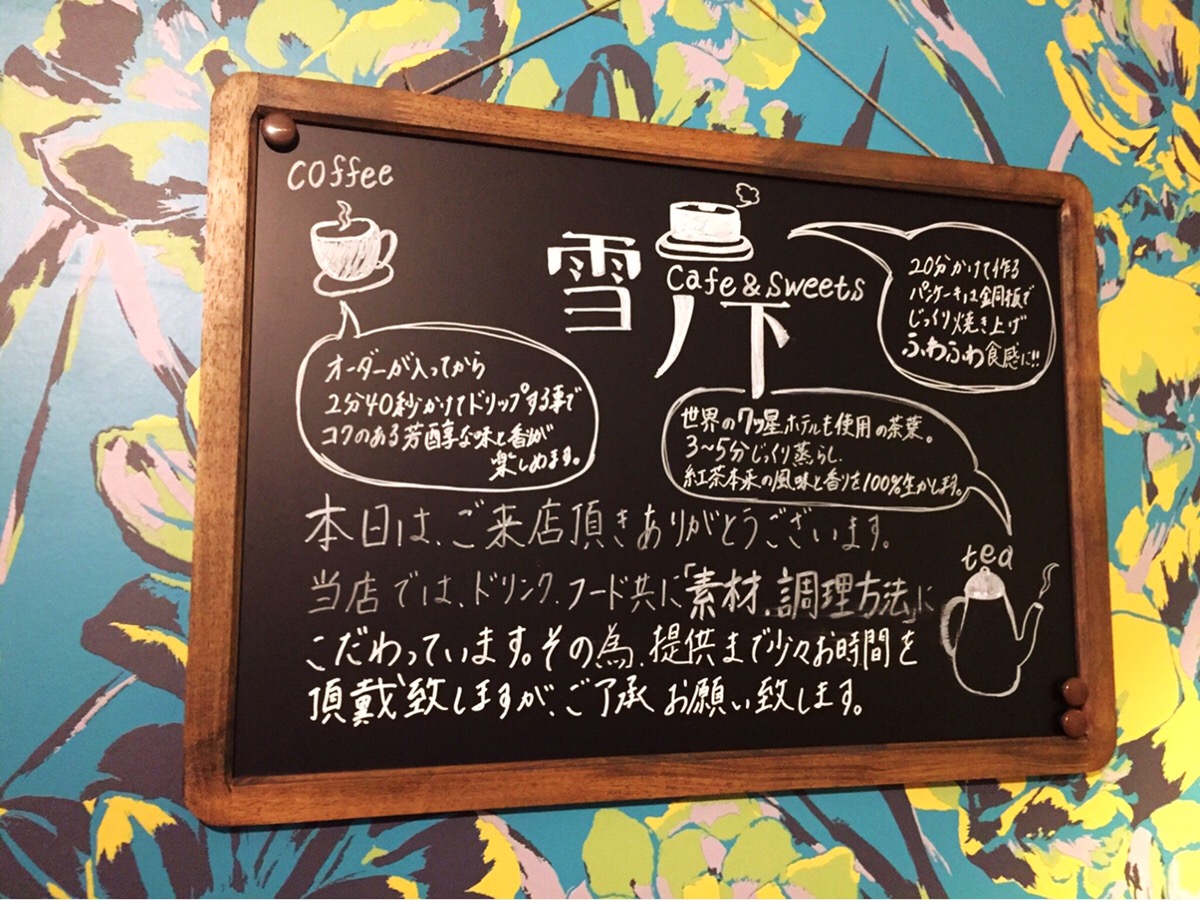 coffee
雪ノ下
Cafe & Sweets
20分かけて作る
パンケーキは銅板で
じっくり焼き上げ
ふわふわ食感に!!
オーダーが入ってから
2分40秒かけてドリップする事で
コクのある芳醇な味と香りが
楽しめます。
世界の7ツ星ホテルも使用の茶葉。
3〜5分じっくり蒸らし、
紅茶本来の風味と香りを100%生かします。
tea
本日は、ご来店頂きありがとうございます。
当店では、ドリンク、フード共に「素材、調理方法」に
こだわっています。その為、提供まで少々お時間を
頂戴致しますが、ご了承お願い致します。